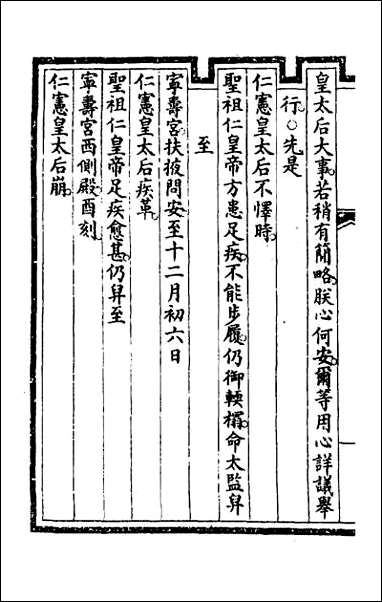 皇太后大事若稍有簡略朕心何安爾等用心詳議舉
行○先是
仁憲皇太后不懌時
聖祖仁皇帝方患足疾不能步履仍御輭榻命太監舁
至
寧壽宮扶掖問安至十二月初六日
仁憲皇太后疾革
聖祖仁皇帝足疾愈甚仍舁至
寧壽宮西側殿酉刻
仁憲皇太后崩